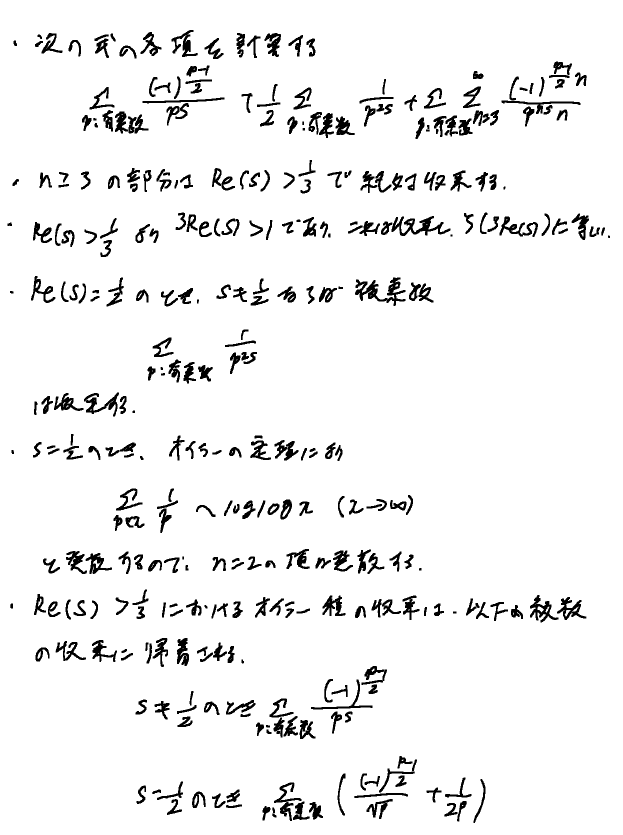 ・次の式の各項を計算する
Σ_{p:奇素数} (-1)^{(p-1)/2}/p^s + 1/2 Σ_{p:奇素数} 1/p^{2s} + Σ_{p:奇素数} Σ_{n=3}^{∞} (-1)^{(p-1)/2 n}/(p^{ns} n)
・n≧3の部分は Re(s) > 1/3 で絶対収束する.
・Re(s) > 1/3 より 3Re(s) > 1 であり、これは収束し、ζ(3Re(s))に等しい.
・Re(s) = 1/2 のとき、s≠1/2 ならば 複素数
Σ_{p:奇素数} 1/p^{2s}
は収束する.
・s = 1/2 のとき、オイラーの定理により
Σ_{p<x} 1/p ~ log log x (x→∞)
と発散するので、n=2の項が発散する.
・Re(s) > 1/3 におけるオイラー積の収束は、以下の級数
の収束に帰着される.
s≠1/2 のとき Σ_{p:奇素数} (-1)^{(p-1)/2}/p^s
s=1/2 のとき Σ_{p:奇素数} ((-1)^{(p-1)/2}/√p + 1/2p)